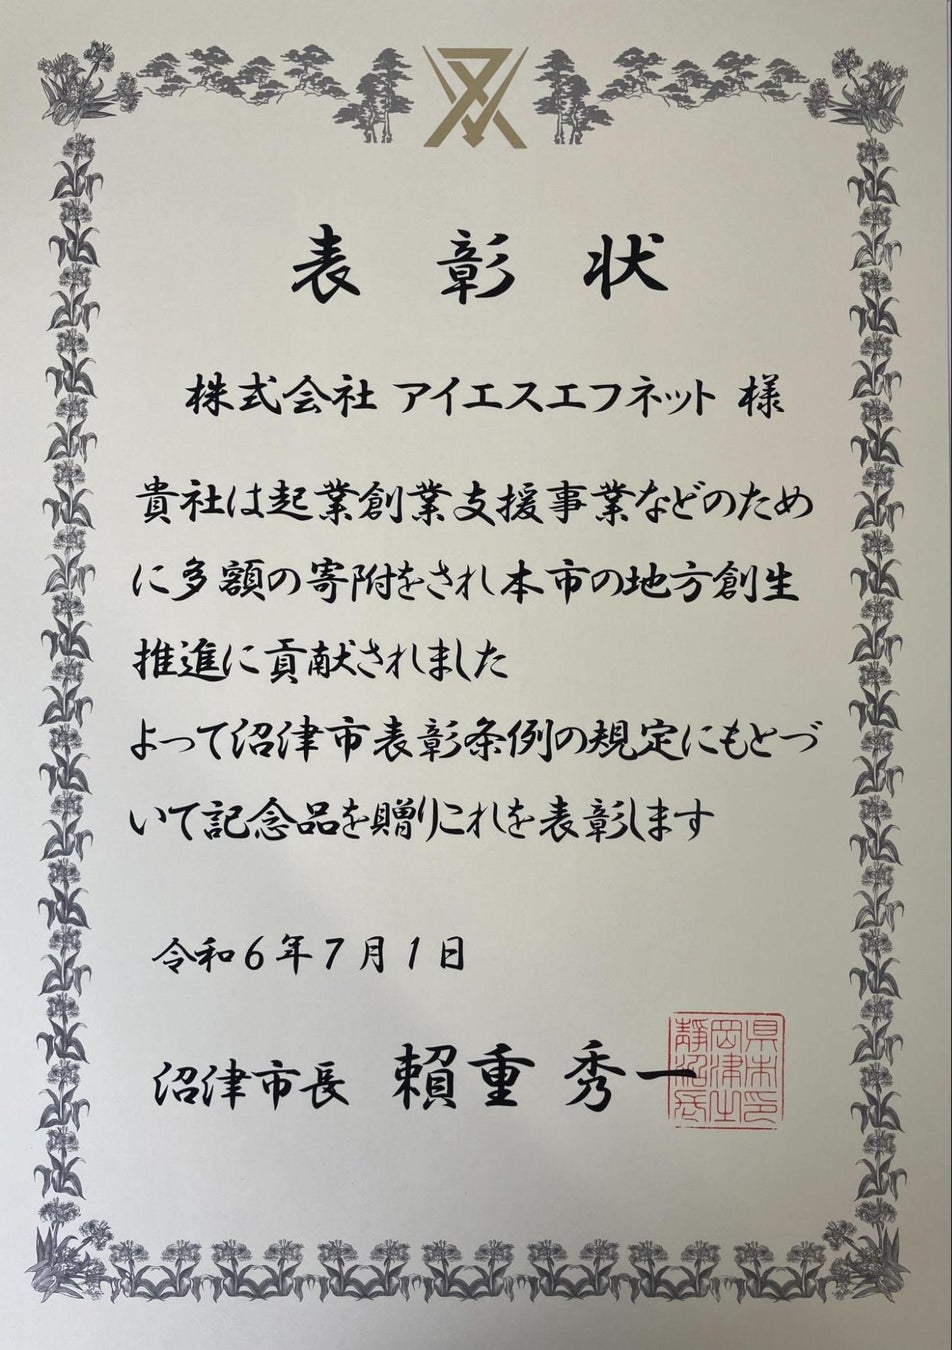 表彰状
株式会社 アイエスエフネット 様
貴社は起業創業支援事業などのため
に多額の寄附をされ本市の地方創生
推進に貢献されました
よって沼津市表彰条例の規定にもとづ
いて記念品を贈りこれを表彰します
令和6年7月1日
沼津市長 賴重 秀一
静岡県
沼津市
長之印